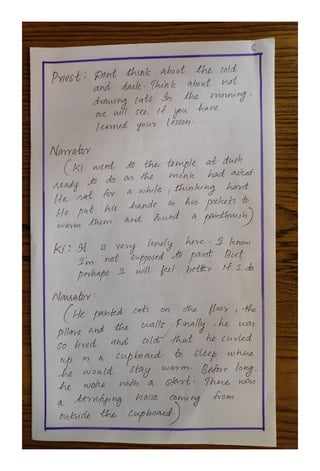 Priest: Dont think about the cold
and dark. Think about not
drawing cats. In the morning,
we will see if you have
learned your lesson.
Narrator
(Ki went to the temple at dusk
ready to do as the monk had asked
He sat for a while, thinking hard
He put his hands in his pockets to
warm them and found a paintbrush)
Ki: It is very lonely here. I know
I'm not supposed to paint. But
perhaps I will feel better if I do
Narrator:
(He painted cats on the floor, the
pillars and the walls. Finally, he was
so tired and cold that he curled
up in a cupboard to sleep where
he would stay warm. Before long
he woke with a start. There was
a terrifying noise coming from
outside the cupboard)